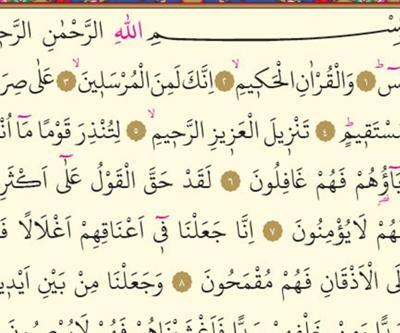 بِسْــــــمِ اللّٰهِ الرَّحْمٰنِ الرَّح
يسٓۜ ﴿١﴾ وَالْقُرْاٰنِ الْحَك۪يمِۙ ﴿٢﴾ اِنَّكَ لَمِنَ الْمُرْسَل۪ينَۙ ﴿٣﴾ عَلٰى صِرَا
مُسْتَق۪يمٍۜ ﴿٤﴾ تَنْز۪يلَ الْعَز۪يزِ الرَّح۪يمِۙ ﴿٥﴾ لِتُنْذِرَ قَوْمًا مَٓا اُنْ
اٰبَٓاؤُ۬هُمْ فَهُمْ غَافِلُونَ ﴿٦﴾ لَقَدْ حَقَّ الْقَوْلُ عَلٰٓى اَكْثَرِ
فَهُمْ لَا يُؤْمِنُونَ ﴿٧﴾ اِنَّا جَعَلْنَا ف۪ٓي اَعْنَاقِهِمْ اَغْلَالًا فَ
اِلَى الْاَذْقَانِ فَهُمْ مُقْمَحُونَ ﴿٨﴾ وَجَعَلْنَا مِنْ بَيْنِ اَيْد۪ي
سَدًّا وَمِنْ خَلْفِهِمْ سَدًّا فَاَغْشَيْنَاهُمْ فَهُمْ لَا يُبْصِرُونَ